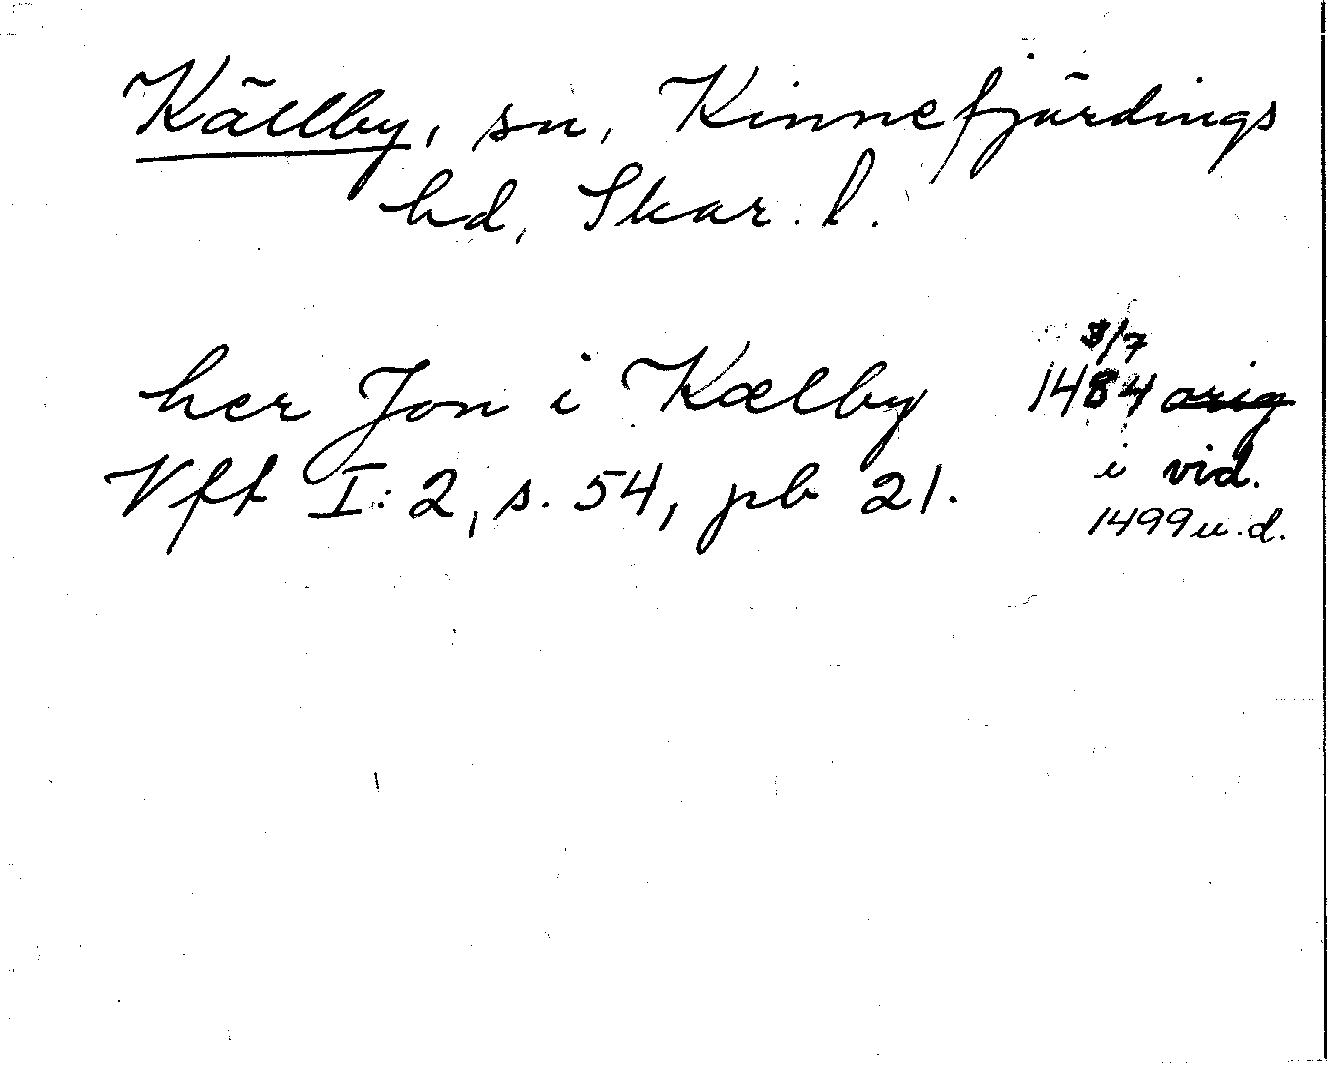 Källby, sn, Kinnefjärdings
hd, Skar. l.
3/7
her Jon i Kælby 1484 orig
Vff I: 2, s. 54, pb 21. i vid.
1499 u.d.